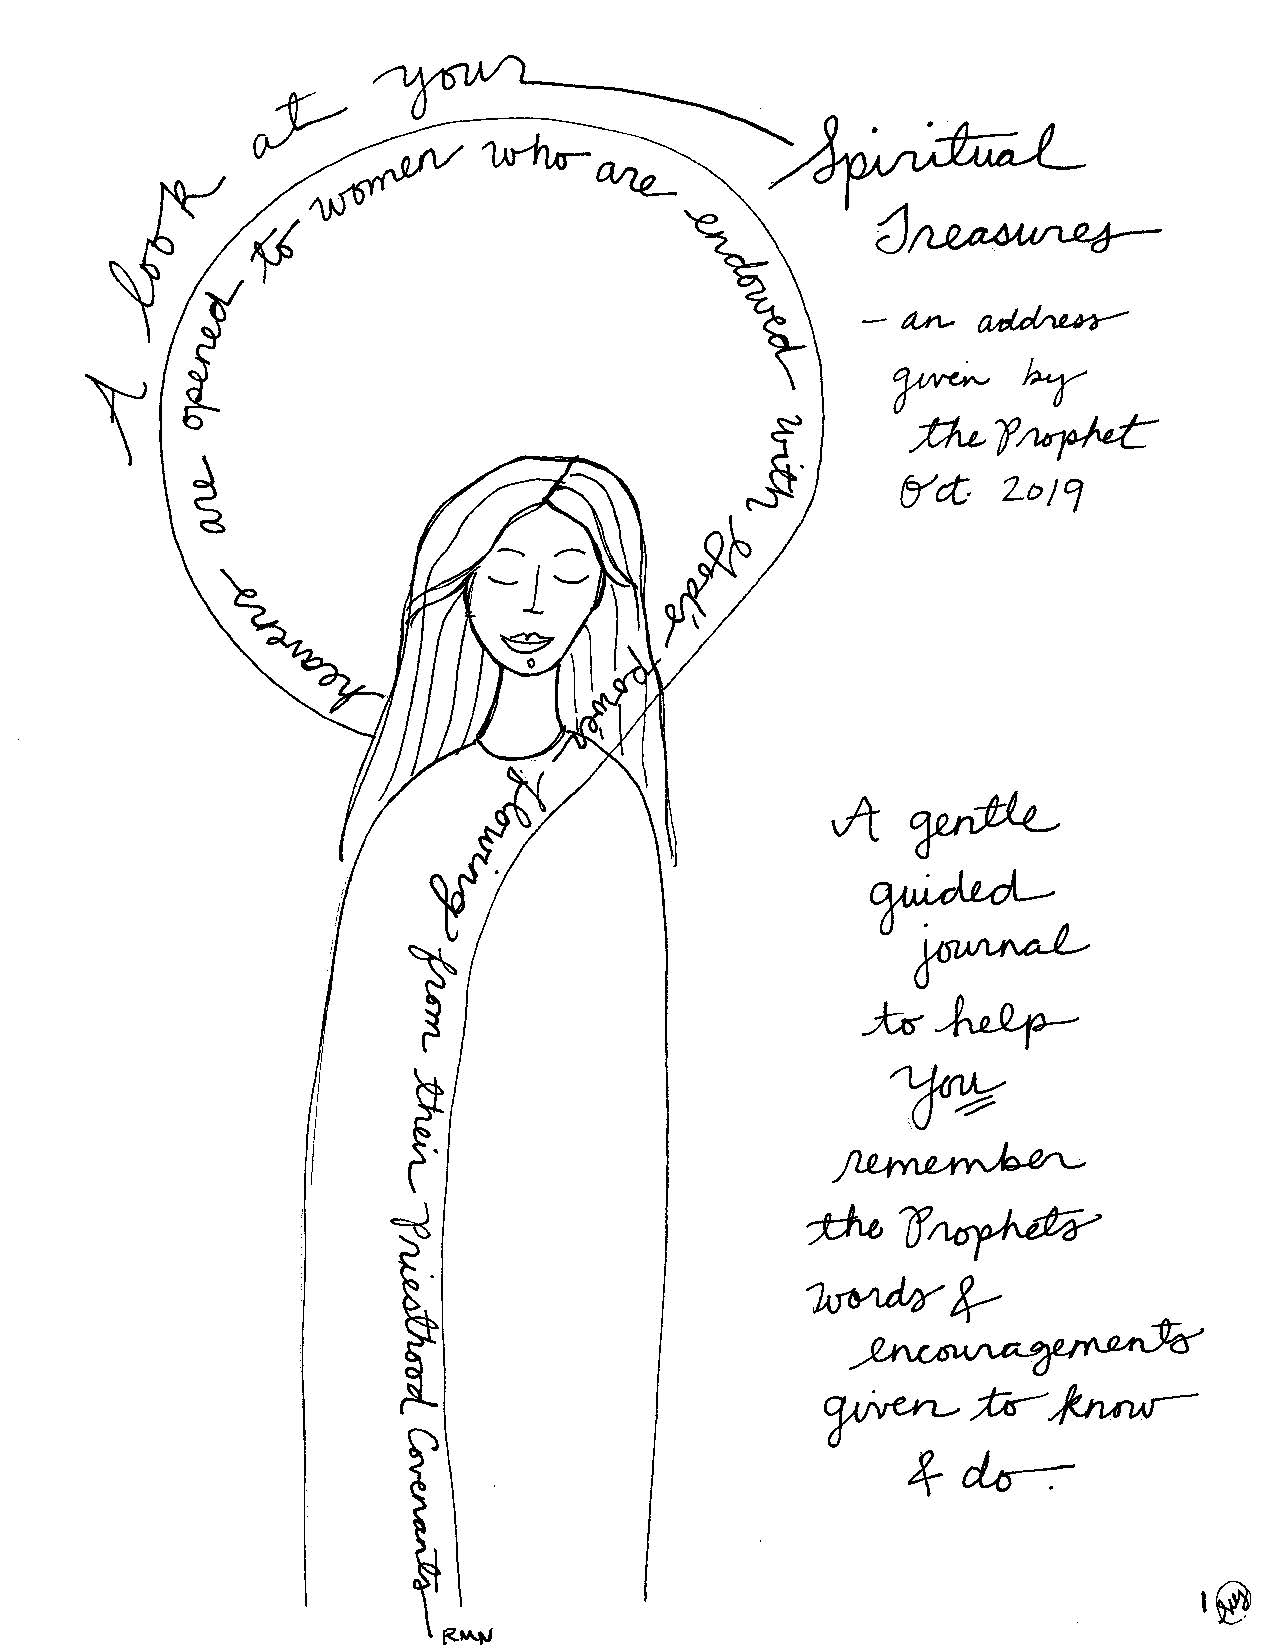 A look at your
Spiritual
Treasures
- an address
given by
the Prophet
Oct. 2019
heavens are opened to women who are endowed with God's power flowing from their Priesthood Covenants
RMN
A gentle
guided
journal
to help
You
remember
the Prophets
words &
encouragements
given to know
& do.
1